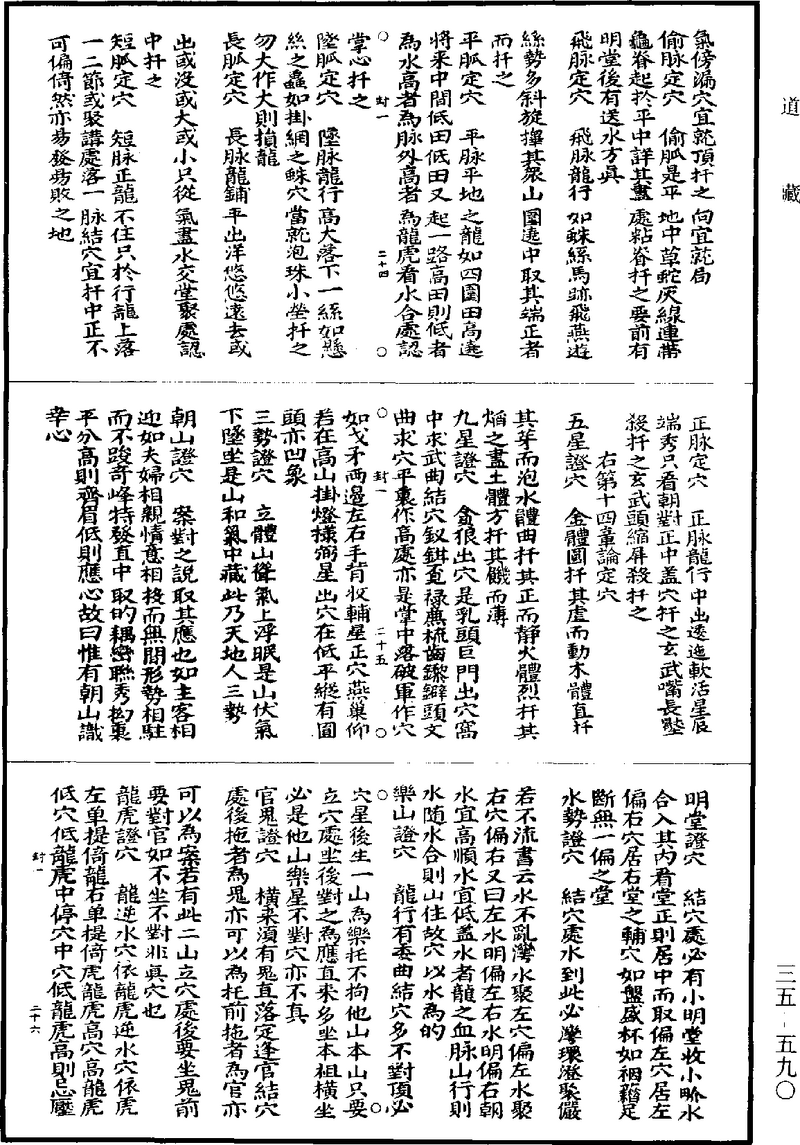 道藏
氣傍漏穴宜就頂扦之向宜就局
偷脉定穴　偷脉是平地中草蛇灰線連帶
龜脊起於平中詳其盡處粘脊扦之要前有
明堂後有送水方真
飛脉定穴　飛脉龍行如蛛絲馬跡飛燕遊
絲勢多斜旋攆其衆山圍遶中取其端正者
而扦之
平脉定穴　平脉平地之龍如四圍田高遶
將来中間低田低田又起一路高田則低者
為水高者為脉外高者為龍虎看水合處認
封一　二十四
掌心扦之
墜脉定穴　墜脉龍行高大落下一絲如懸
絲之蠱如掛網之蛛穴當就泡珠小坐扦之
勿大作大則損龍
長脉定穴　長脉龍鋪平出洋悠悠遠去或
出或没或大或小只從氣盡水交堂聚處認
中扦之
短脉定穴　短脉正龍不住只於行龍上落
一二節或聚講處落一脉結穴宜扦中正不
可偏倚然亦易發易敗之地
正脉定穴　正脉龍行中出逶迤軟活星辰
端秀只看朝對正中盖穴扦之玄武嘴長墜
殺扦之玄武頭縮屏殺扦之
右第十四章論定穴
五星證穴　金體圓扦其虛而動木體直扦
其芽而泡水體曲扦其正而静火體烈扦其
焰之盡土體方扦其饑而薄
九星證穴　貪狼出穴是乳頭巨門出穴窩
中求武曲結穴釵鉗覔禄廉梳齒鑗鐴頭文
曲求穴平裏作高處亦是掌中落破軍作穴
封一　二十五
如戈矛兩邊左右手肯收輔星正穴燕巢仰
若在高山掛燈樣弼星出穴在低平縱有圓
頭亦凹象
三勢證穴　立體山聳氣上浮眠是山伏氣
下墜坐是山和氣中藏此乃天地人三勢
朝山證穴　案對之說取其應也如主客相
迎如夫婦相親情意相投而無間形勢相駐
而不踆奇峰特發直中取的耦巒聯秀拗裏
平分高則齊眉低則應心故曰惟有朝山識
幸心
明堂證穴　結穴處必有小明堂收小畍水
合入其内看堂正則居中而取偏左穴居左
偏右穴居右堂之輔穴如盤盛杯如裀藉足
斷無一偏之堂
水勢證穴　結穴處水到此必灣環澄聚儼
若不流書云水不亂灣水聚左穴偏左水聚
右穴偏右又曰左水明偏左右水明偏右朝
水宜高順水宜低盖水者龍之血脉山行則
水随水合則山住故穴以水為的
樂山證穴　龍行有委曲結穴多不對頂必
穴星後生一山為樂托不拘他山本山只要
立穴處坐後對之為應直来多坐本祖横坐
必是他山樂星不對穴亦不真
官鬼證穴　横来須有鬼直落定逢官結穴
處後拖者為鬼亦可以為托前拖者為官亦
可以為案若有此二山立穴處後要坐鬼前
要對官如不坐不對非真穴也
龍虎證穴　龍逆水穴依龍虎逆水穴依虎
左單提倚龍右單提倚虎龍虎高穴高龍虎
低穴低龍虎中停穴中穴低龍虎高則忌壓
封一　二十六
三五-五九〇